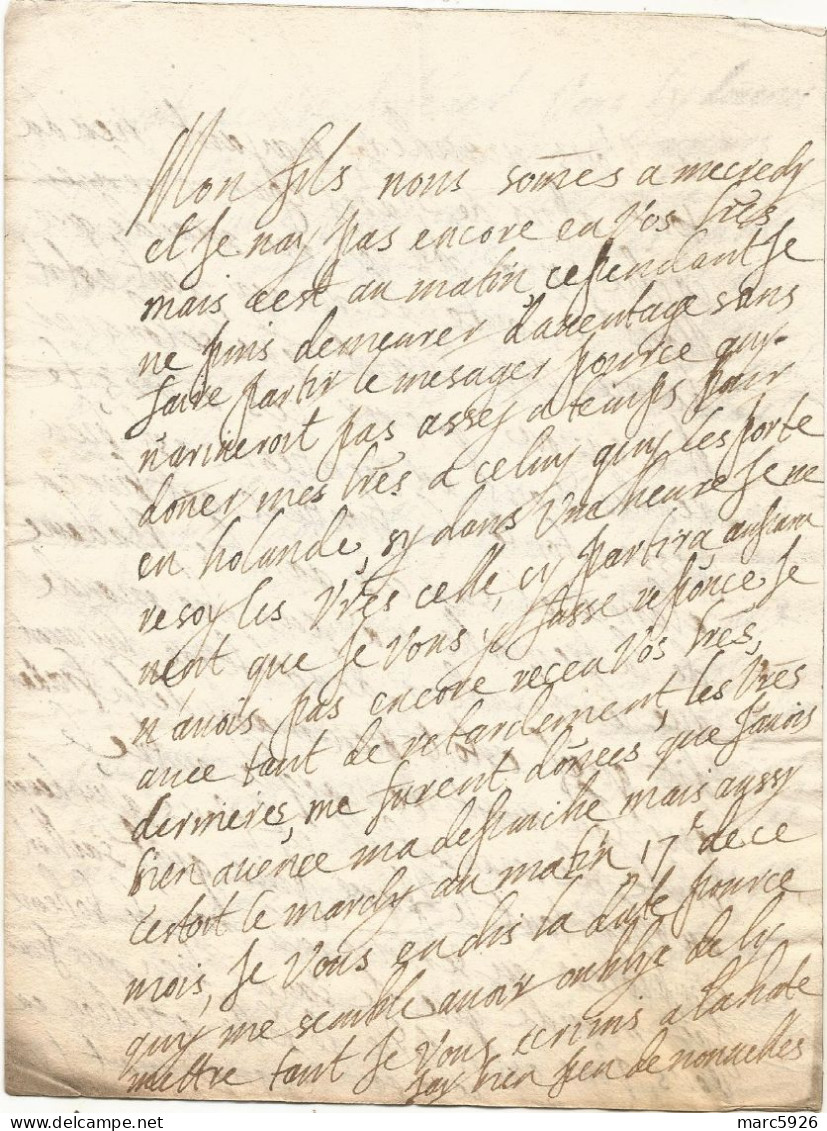 Mon fils nous somes a mecredy
et Je nay pas encore eu Vos lres
mais cest au matin, cependant Je
ne puis demeurer dauentage sans
faire partir le mesager pource quy
nariueroit pas assez a temps pour
doner mes lres a celuy quy les porte
en holande, sy dans Une heure Je ne
resoy les Vres celle cy partira
que Je Vous y fasse reponce Je
n'auois pas encore receu Vos lres,
auec tant de retardement, les Vres
dernieres, me furent donées que J'auois
bien auencé ma depeiche mais aussy
cestoit le mardy au matin 17e de ce
mois, Je Vous en dis la date pource
quy me semble auoir oublye de ly
mettre tant Je Vous écriuis a la hate
Jay bien peu de nouuelles
marc5926